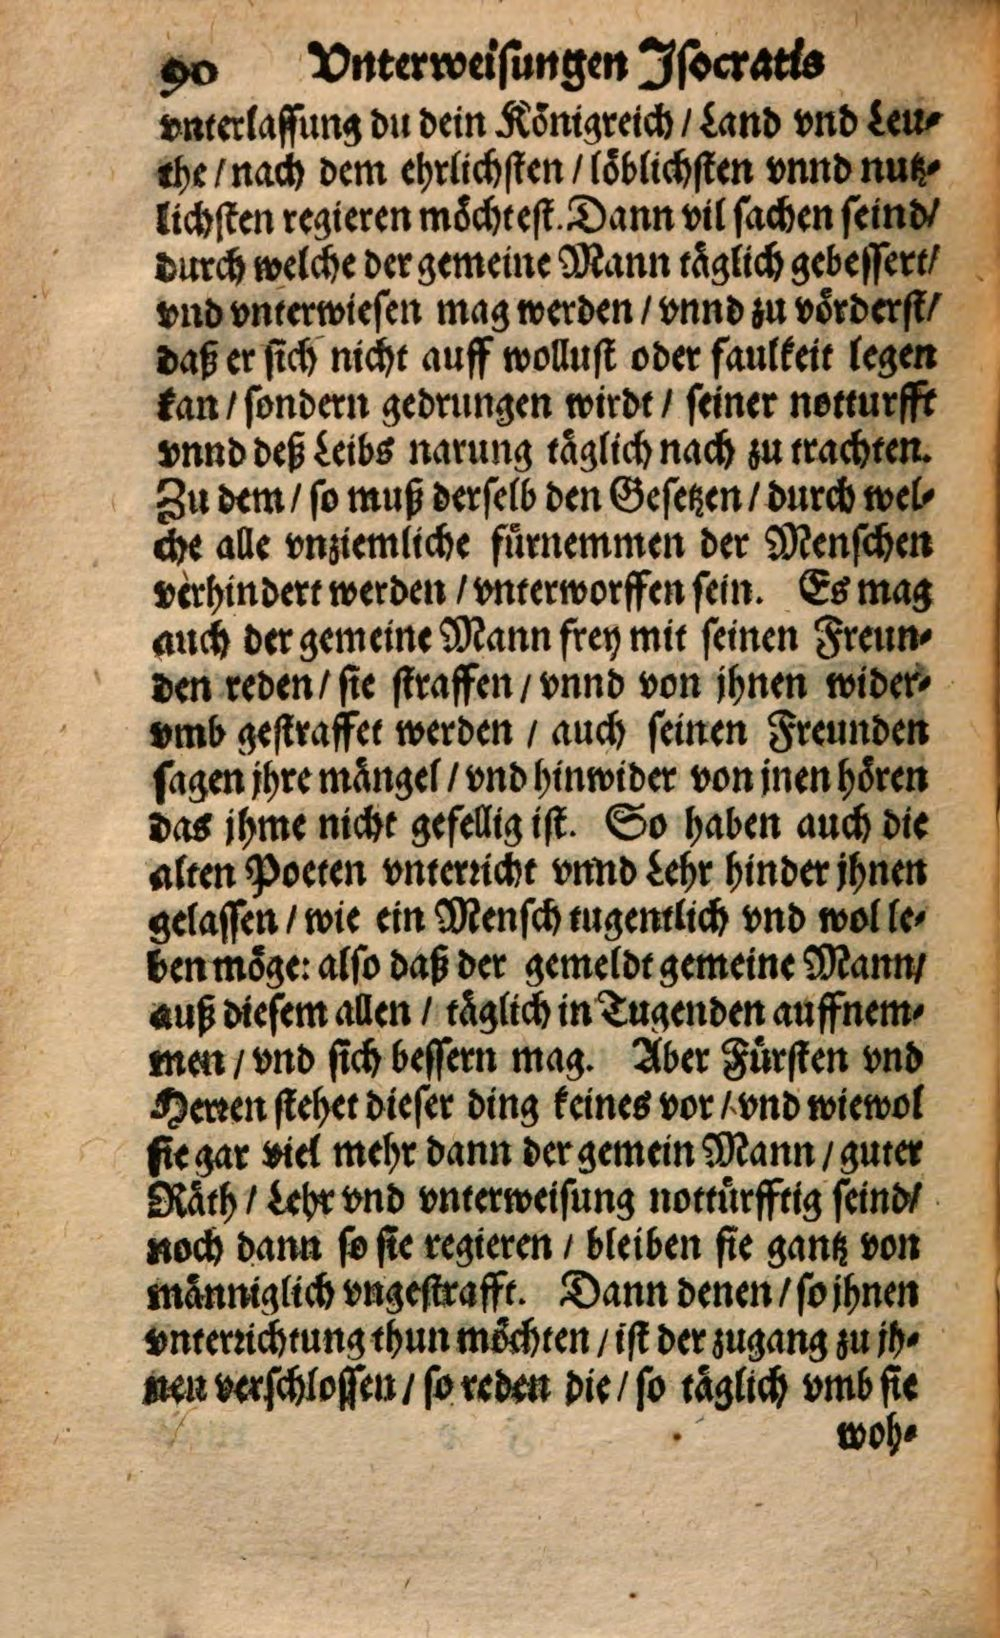 90 Vnterweisungen Jsocratis
vnterlassung du dein Königreich / Land vnd Leu-
the / nach dem ehrlichsten / löblichsten vnnd nutz-
lichsten regieren möchtest. Dann vil sachen seind /
durch welche der gemeine Mann täglich gebessert /
vnd vnterwiesen mag werden / vnnd zu vörderst /
daß er sich nicht auff wollust oder faulkeit legen
kan / sondern gedrungen wirdt / seiner notturfft
vnnd deß Leibs narung täglich nach zu trachten.
Zu dem / so muß derselb den Gesetzen / durch wel-
che alle vnziemliche fürnemmen der Menschen
verhindert werden / vnterworffen sein. Es mag
auch der gemeine Mann frey mit seinen Freun-
den reden / sie straffen / vnnd von jhnen wider-
vmb gestraffet werden / auch seinen Freunden
sagen jhre mängel / vnd hinwider von jnen hören
das jhme nicht gefellig ist. So haben auch die
alten Poeten vnterricht vnnd Lehr hinder jhnen
gelassen / wie ein Mensch tugentlich vnd wol le-
ben möge: also daß der gemeldt gemeine Mann /
auß diesem allen / täglich in Tugenden auffnem-
men / vnd sich bessern mag. Aber Fürsten vnd
Herren stehet dieser ding keines vor / vnd wiewol
sie gar viel mehr dann der gemein Mann / guter
Räth / Lehr vnd vnterweisung nottürfftig seind /
noch dann so sie regieren / bleiben sie gantz von
männiglich vngestrafft. Dann denen / so jhnen
vnterrichtung thun möchten / ist der zugang zu jh-
nen verschlossen / so reden die / so täglich vmb sie
woh-